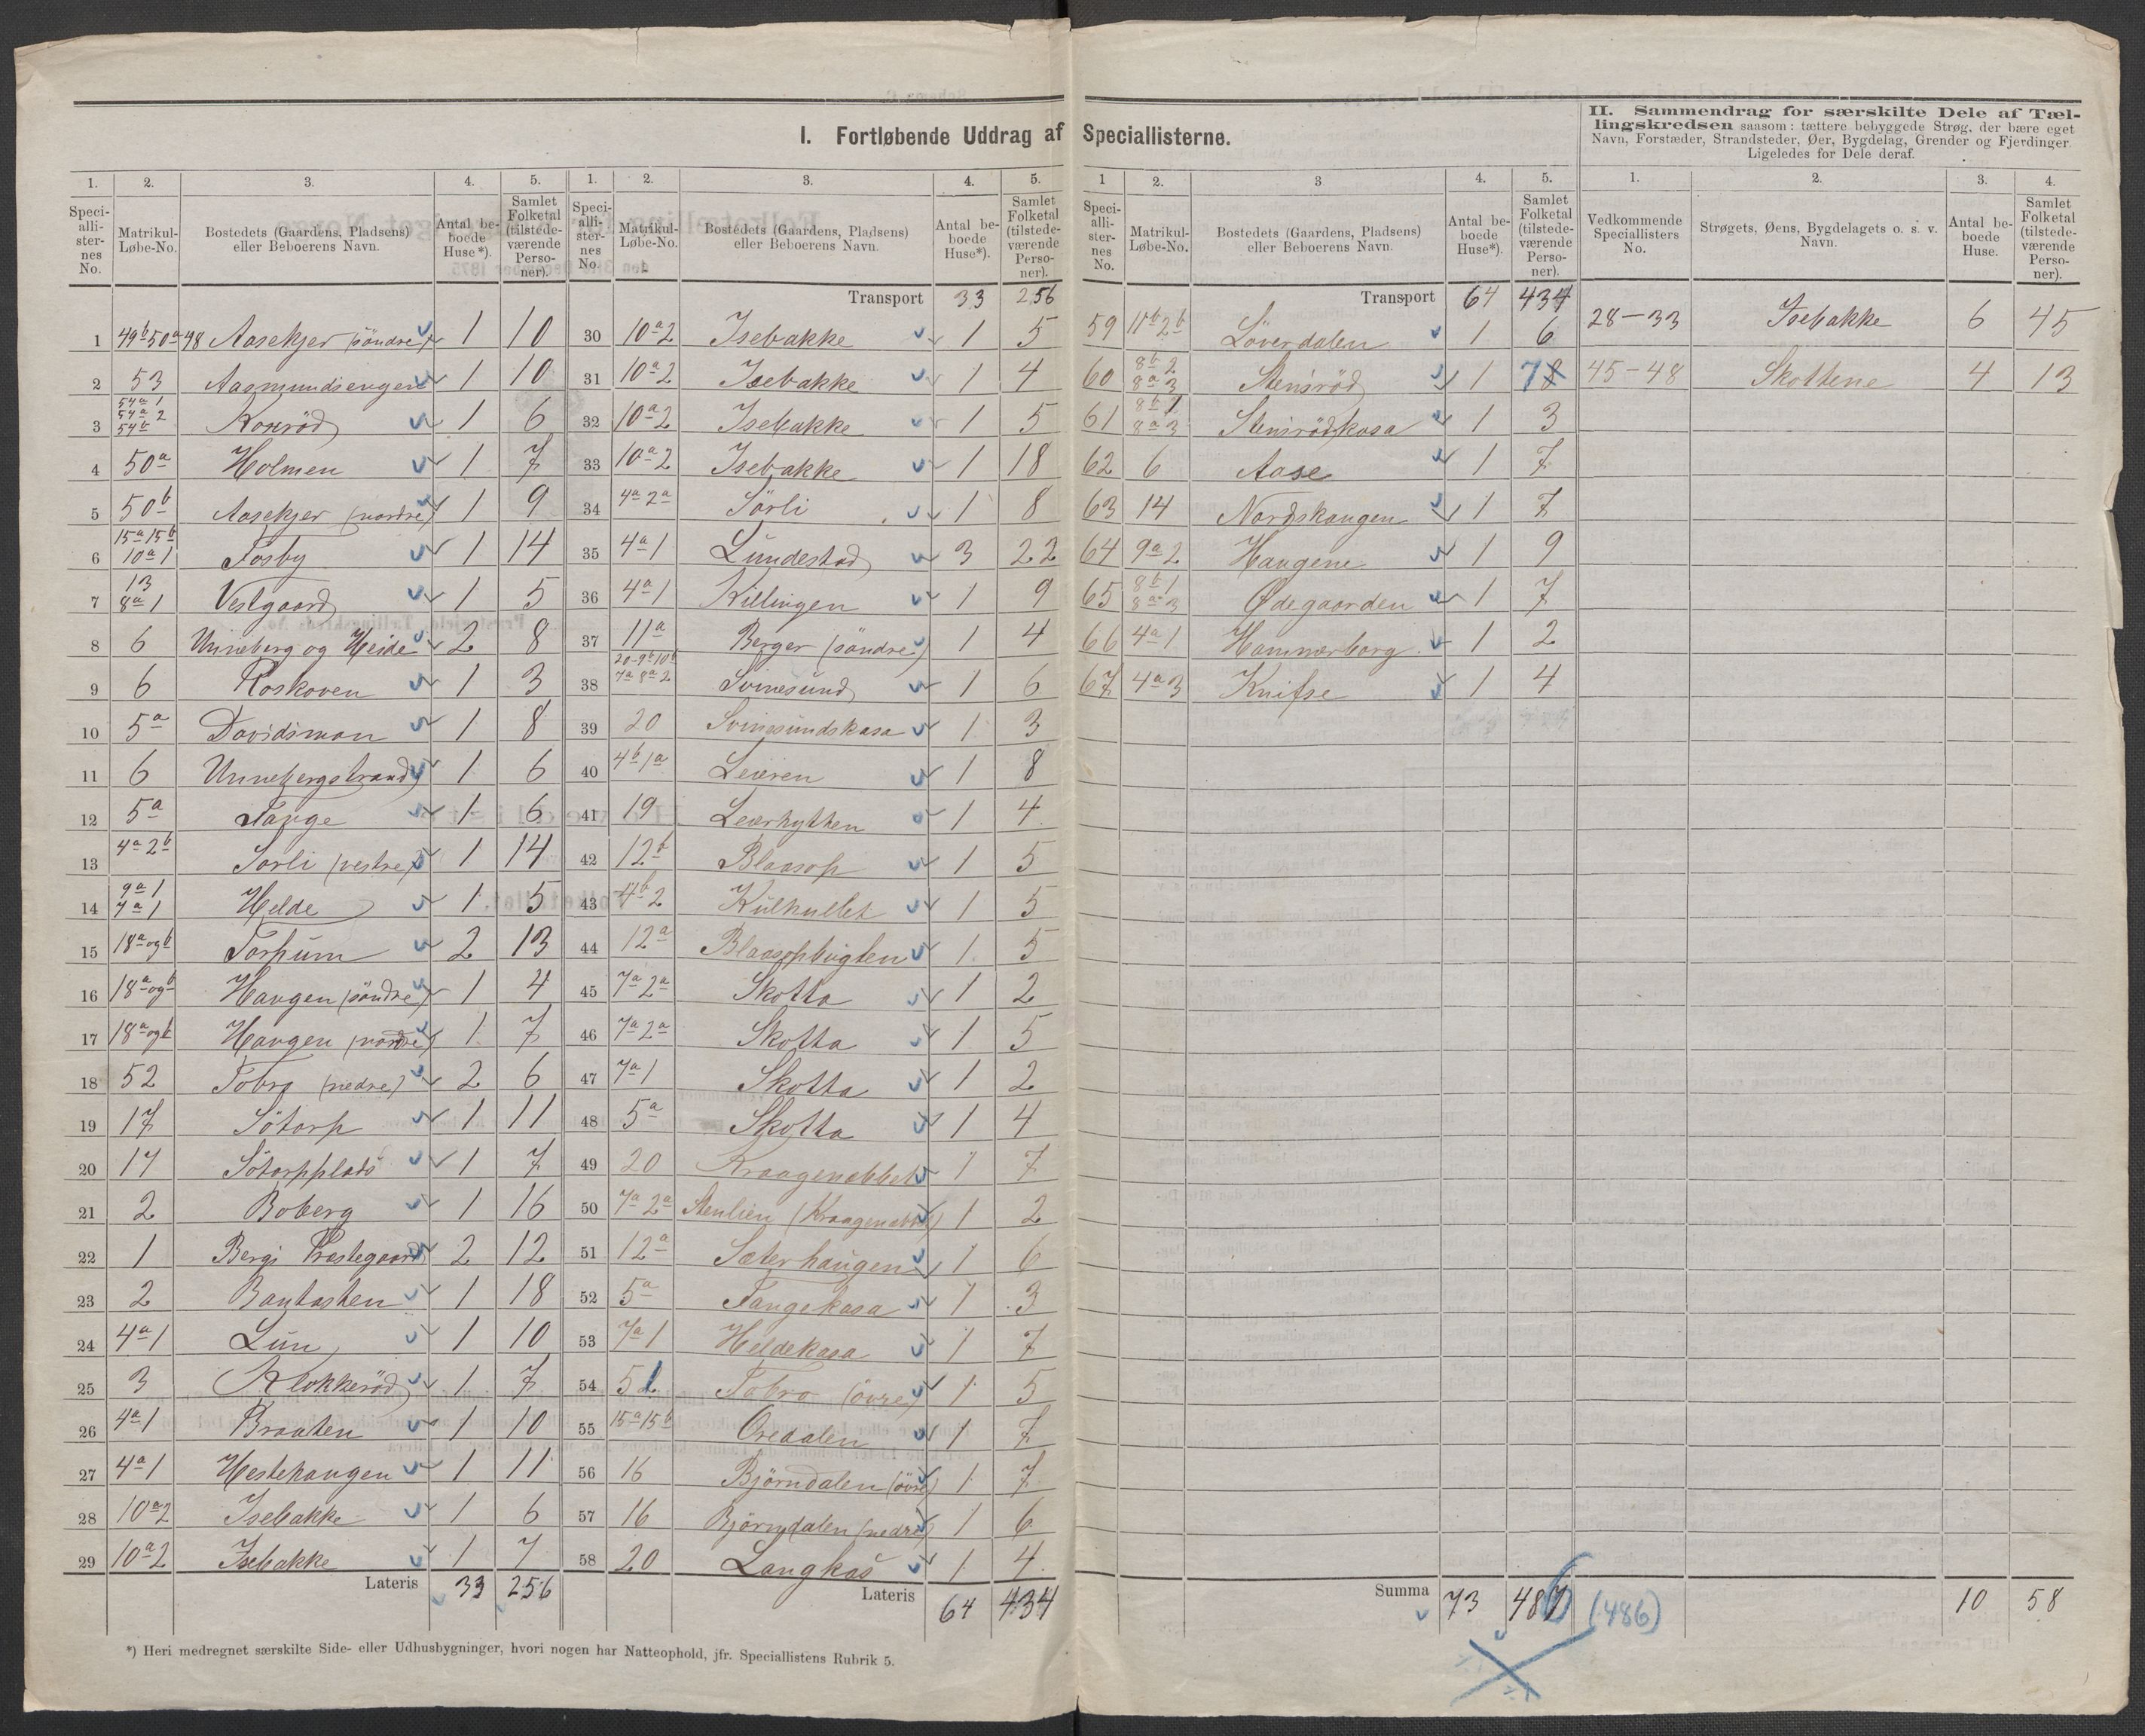 I. Fortløbende Uddrag af Speciallisterne.
1. 2. 3. 4. 5.
Speciallisternes No. Matrikul-Løbe-No. Bostedets (Gaardens, Pladsens) eller Beboerens Navn. Antal beboede Huse*). Samlet Folketal (tilstedeværende Personer).
1 49b 50a 48 Aasekjer (söndre) 1 10
2 53 Aasmundsengen 1 10
3 54a 1 54a 2 54b Korsröd 1 6
4 50a Holmen 1 7
5 50b Aasekjer (nordre) 1 9
6 15a 15b 10a 1 Fosby 1 14
7 13 8a 1 Vestgaard 1 5
8 6 Unneberg og Heide 2 8
9 6 Roskoven 1 3
10 5a Davidsmon 1 8
11 6 Unnebergstrand 1 6
12 5a Tange 1 6
13 4a 2b Sörli (vestre) 1 14
14 9a 1 7a 1 Helde 1 5
15 18a og b Torpum 2 13
16 18a og b Haugen (söndre) 1 4
17 18a og b Haugen (nordre) 1 7
18 52 Tobro (nedre) 2 6
19 17 Sötorp 1 11
20 17 Sötorpplads 1 7
21 2 Boberg 1 16
22 1 Bergs Præstegaard 2 12
23 2 Bautasten 1 18
24 4a 1 Lun 1 10
25 3 Klokkeröd 1 7
26 4a 1 Braaten 1 10
27 4a 1 Hestehaugen 1 11
28 10a 2 Isebakke 1 6
29 10a 2 Isebakke 1 7
Lateris 33 256
1. 2. 3. 4. 5.
Speciallisternes No. Matrikul-Løbe-No. Bostedets (Gaardens, Pladsens) eller Beboerens Navn. Antal beboede Huse*). Samlet Folketal (tilstedeværende Personer).
Transport 33 256
30 10a 2 Isebakke 1 5
31 10a 2 Isebakke 1 4
32 10a 2 Isebakke 1 5
33 10a 2 Isebakke 1 18
34 4a 2a Sörli 1 8
35 4a 1 Lundestad 3 22
36 4a 1 Killingen 1 9
37 11a Berger (söndre) 1 4
38 20-9b 10b 7a 8a 2 Svinesund 1 6
39 20 Svinesundskasa 1 3
40 4b 1a Leieren 1 8
41 19 Leierhytten 1 4
42 12b Blaasop 1 5
43 4b 2 Kulhullet 1 5
44 12a Blaasopbugten 1 5
45 7a 2a Skotta 1 2
46 7a 2a Skotta 1 5
47 7a 1 Skotta 1 2
48 5a Skotta 1 4
49 20 Kraagenebbet 1 7
50 7a 2a Stenlien (Kraagenebbet) 1 2
51 12a Sæterhaugen 1 6
52 5a Tangekasa 1 3
53 7a 1 Heldekasa 1 7
54 51 Tobro (övre) 1 5
55 15a 15b Oredalen 1 7
56 16 Björndalen (övre) 1 7
57 16 Björndalen (nedre) 1 6
58 20 Langkås 1 4
Lateris 64 434
1 2. 3 4. 5.
Speciallisternes No. Matrikul-Løbe-No. Bostedets (Gaardens, Pladsens) eller Beboerens Navn. Antal beboede Huse*). Samlet Folketal (tilstedeværende Personer).
Transport 64 434
59 11b 2b Löverdalen 1 6
60 8b 2 8a 3 Stensröd 1 7 8
61 8b 1 8a 3 Stensrödkasa 1 3
62 6 Aase 1 7
63 14 Nordskaugen 1 7
64 9a 2 Haugene 1 9
65 8b 1 8a 3 Ødegaarden 1 7
66 4a 1 Hammerborg 1 2
67 4a 3 Knifse 1 4
Summa 73 486 (486)
II. Sammendrag for særskilte Dele af Tæl-
lingskredsen saasom: tættere bebyggede Strøg, der bære eget
Navn, Forstæder, Strandsteder, Øer, Bygdelag, Grender og Fjerdinger.
Ligeledes for Dele deraf.
1. 2. 3. 4.
Vedkommende Speciallisters No. Strøgets, Øens, Bygdelagets o. s. v. Navn. Antal beboede Huse. Samlet Folketal (tilstedeværende Personer).
28-33 Isebakke 6 45
45-48 Skottene 4 13
10 58
*) Heri medregnet særskilte Side- eller Udhusbygninger, hvori nogen har Natteophold, jfr. Speciallistens Rubrik 5.